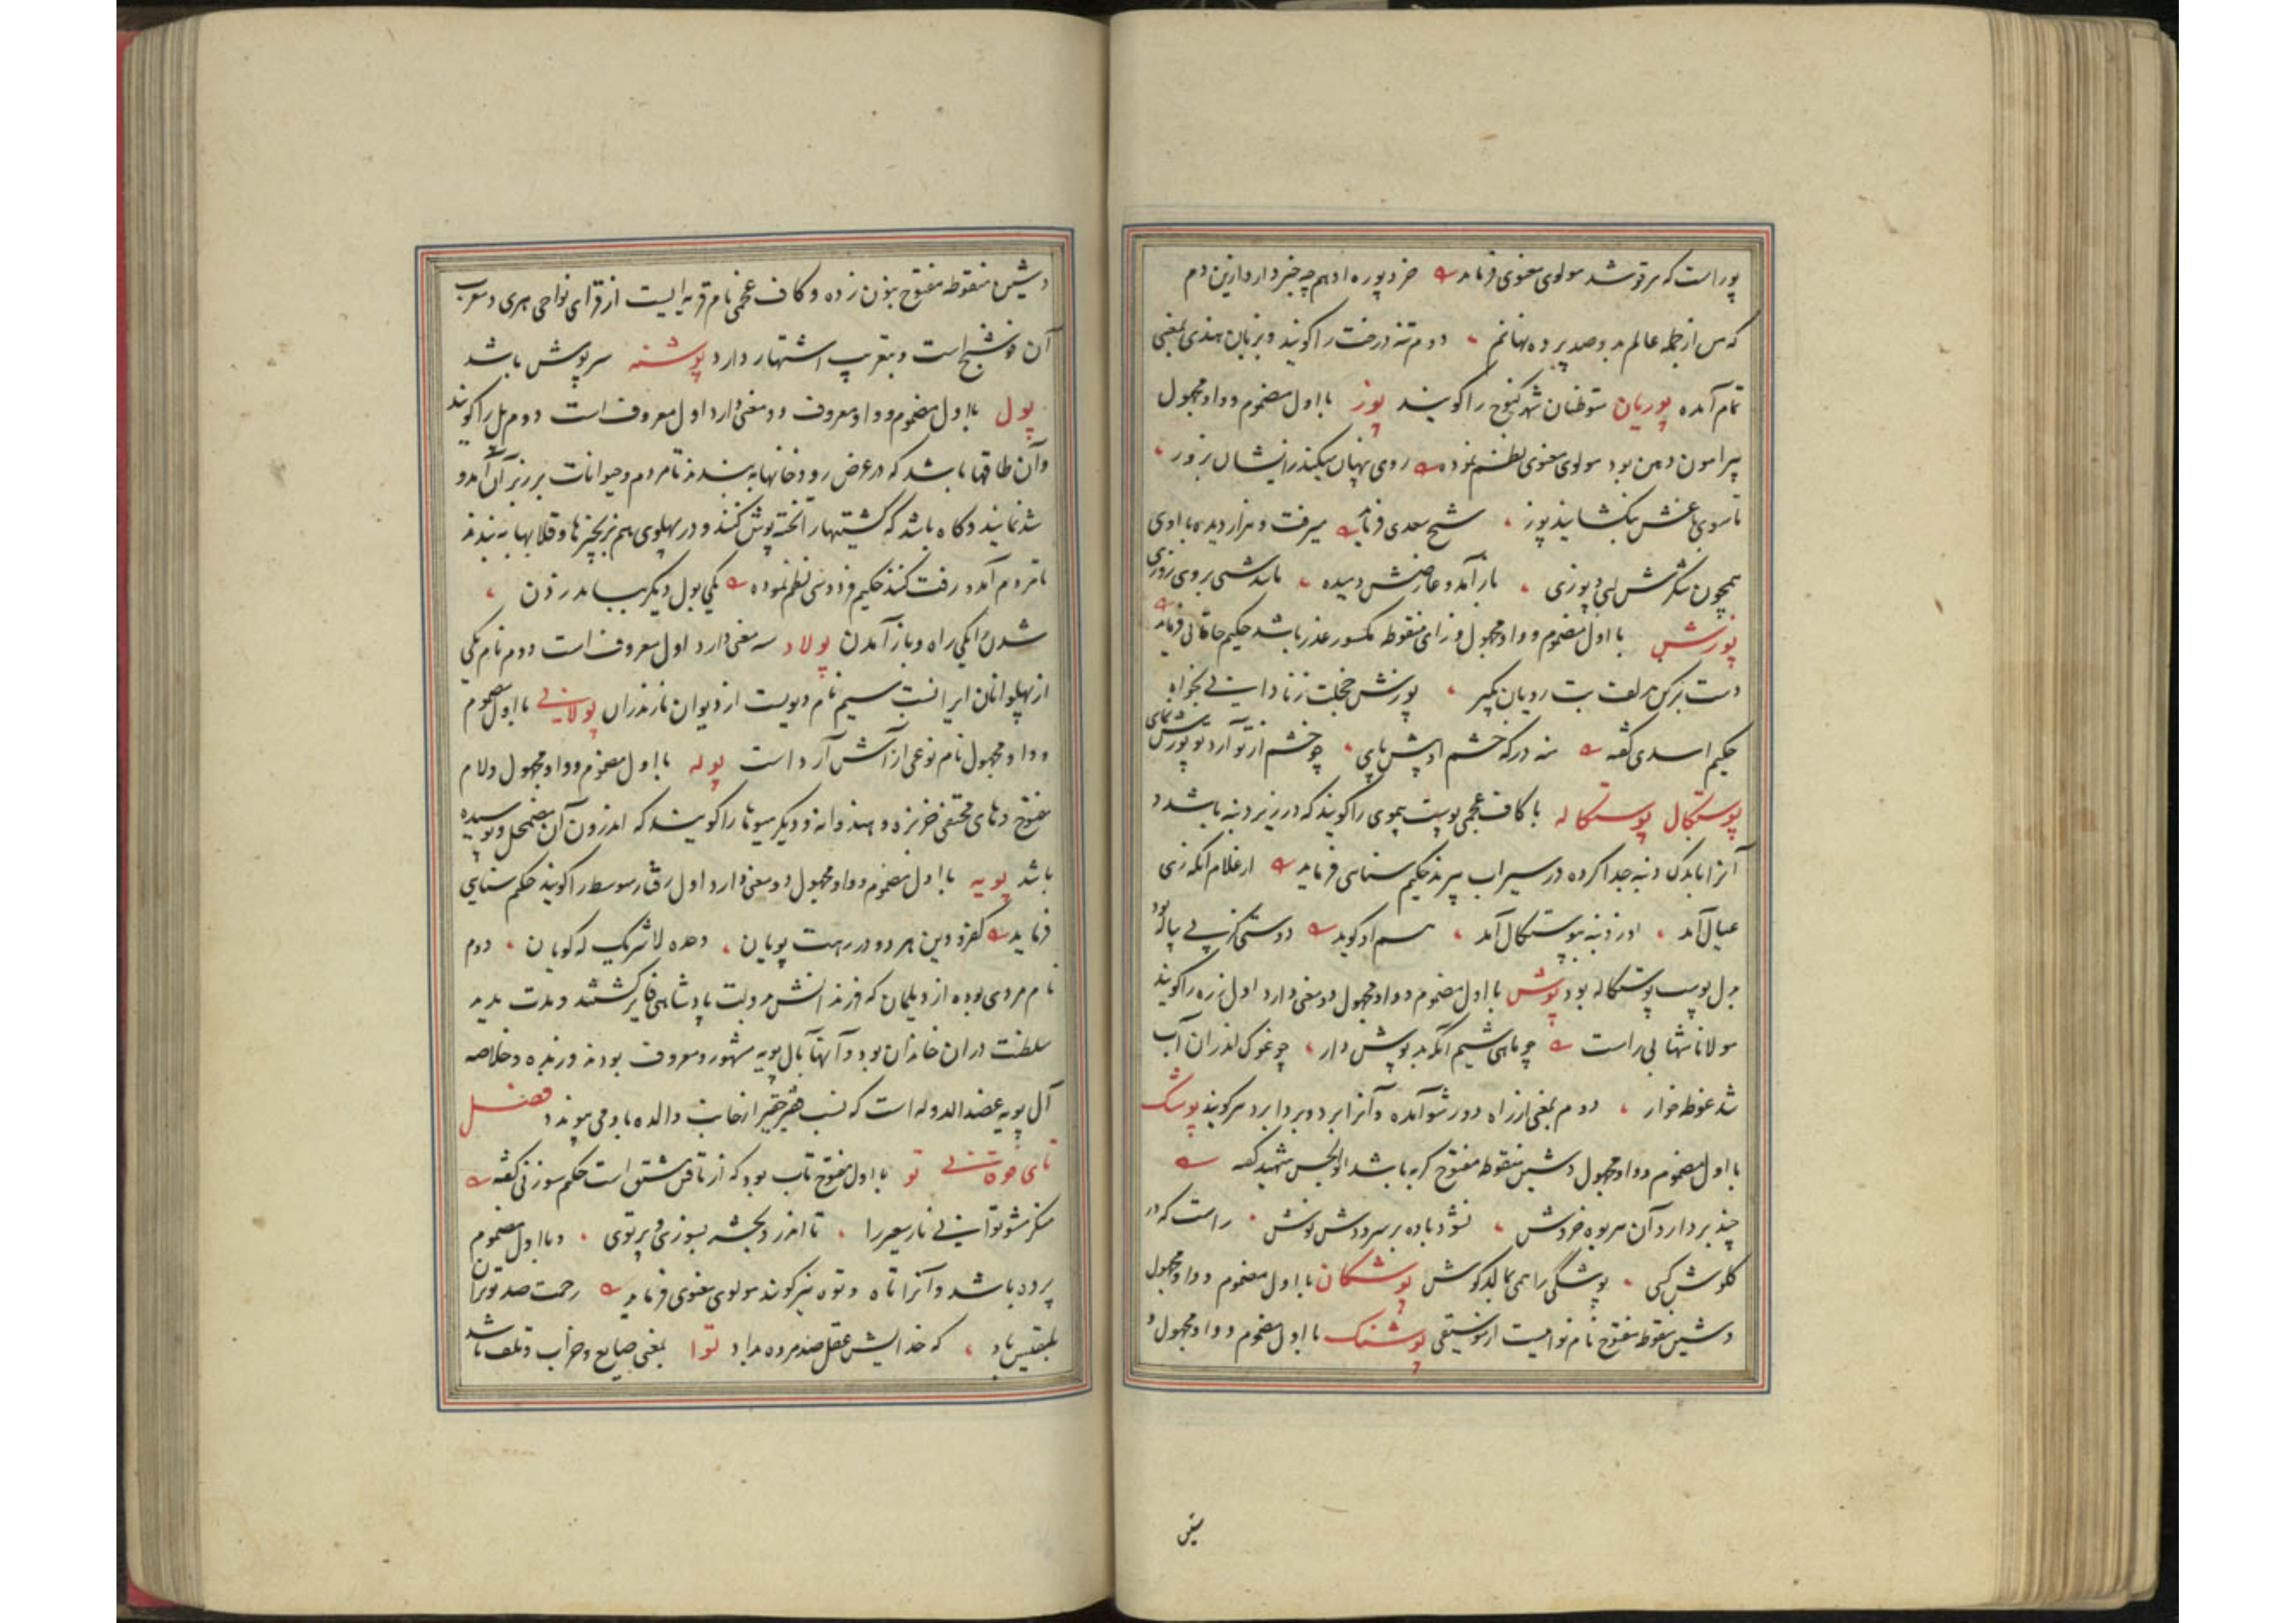 پور است که مرقوم شد مولوی معنوی فرماید خر دپوره ادهم چه خبر دارد ازین دم
که من از جمله عالم بدو صد پرده نهانم دوم تنه درخت را کویند و بزبان هندی بمعنی
تمام آمده پوریان متوطنان شهر کنوج را کویند پوز با اول مضموم و واو مجهول
پیرامون دهن بود مولوی معنوی نظم نموده روی پنهان میکند زایشان بروز
تا سوی باغش بکشایند پوز شیخ سعدی فرماید میرفت و هزار دیده با اوی
همچون شکرش لبی و پوزی باز آمد و عارضش دمیده مانند شبی بروی روزی
پوزش با اول مضموم و واو مجهول و زای منقوطه مکسور عذر باشد حکیم خاقانی فرماید
دست بزکن زلف بت رویان بگیر پوزش خجلت ز نادانی بخواه
حکیم اسدی گفته منه در که خشم او پیش پای چو خشم از تو آرد تو پوزش نمای
پوستکال پوستکاله با کاف عجمی پوست بیموی را کویند که در زیر دنبه باشد و
آنرا با بدک دنبه جدا کرده در سیراب پزند حکیم سنایی فرماید از غلام آنکه زی
عیال آمد اوز دنبه بپوستکال آمد هم او کوید دوستی کز پی پیاله بود
بدل پوست پوستکاله بود پوش با اول مضموم و واو مجهول دو معنی دارد اول زره را کویند
مولانا شهابی راست چو ماهی شیم آنکه بد پوش دار چو غوک اندران آب
شد غوطه خوار دوم بمعنی از راه دور شو آمده و آنرا برد و بردا برد نیز کویند پوشک
با اول مضموم و واو مجهول و شین منقوطه مفتوح گربه باشد ابو الحسن شهید گفته
چند بردارد آن هریوه خروش نشود باده بر سرودش نوش راست که در
کلوش کسی پوشکی را همی بمالد کوش پوشکان با اول مضموم و واو مجهول
و شین منقوطه مفتوح نام نوائیست از موسیقی پوشنک با اول مضموم و واو مجهول و
شین
و شین منقوطه مفتوح بنون زده و کاف عجمی نام قریه ایست از قرای نواحی هری و معرب
آن فوشنج است و بتعریب اشتهار دارد پوشنه سرپوش باشد
پول با اول مضموم و واو معروف دو معنی دارد اول معروف است دوم پل را کویند
و آن طاقها باشد که در عرض رودخانها به بندند تا مردم و حیوانات بر زبر آن آمد و
شد نمایند و گاه باشد که کشتیها را تخته پوش کنند و در پهلوی هم بزنجیرها و قلابها به بندند
تا مردم آمد و رفت کنند حکیم فردوسی نظم نموده یکی پول دیگر بباید زدن
شدن را یکی راه و باز آمدن پولاد سه معنی دارد اول معروف است دوم نام یکی
از پهلوانان ایرانست سیم نام دیویست از دیوان مازندران پولانی با اول مضموم
و واو مجهول نام نوعی از آش آرد است پوله با اول مضموم و واو مجهول و لام
مفتوح و های مختفی خربزه و هندوانه و دیگر میوها را کویند که اندرون آن مضمحل و پوسیده
باشد پویه با اول مضموم و واو مجهول دو معنی دارد اول رفتار متوسط را کویند حکیم سنایی
فرماید کفر و دین هر دو در رهت پویان وحده لا شریک له گویان دوم
نام مردی بوده از دیلمان که فرزندانش بدولت پادشاهی فایز گشتند و مدت مدید
سلطنت دران خاندان بود و آنها بآل پویه مشهور و معروف بودند و زبده و خلاصه
آل پویه عضد الدوله است که نسب فقیر حقیر از جانب والده باو می پیوندد فصل
تای فوقانی تو با اول مفتوح تاب بود که از تافتن مشتق است حکیم سوزنی گفته
منکر مشو تو آتش نار سعیر را تا اندر و بجسته بسوزی و برتوی و با اول مضموم
پرده باشد و آنرا تاه و توه نیز کویند مولوی معنوی فرماید رحمت صد تو بران
بلقیس باد که خدایش عقل صد مرده بداد توا بمعنی ضایع و خراب و تلف باشد